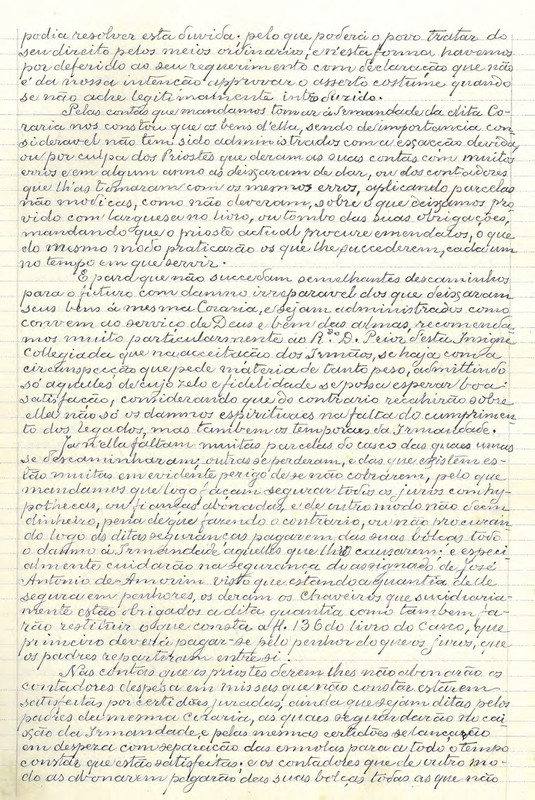 podia resolver esta duvida: pelo que poderá o povo tratar do
seu direito pelos meios ordinarios, e n'esta forma havemos
por deferido ao seu requerimento com declaração que não
é da nossa intenção approvar o asserto costume quando
se não ache legitimamente introduzido.
Pelas contas que mandamos tomar á Irmandade da dita Co-
raria nos constou que os bens d'ella, sendo de importancia con
sideravel não tem sido administrados com a exacção devida,
ou por culpa dos Priostes que deram as suas contas com muitos
erros e em algum anno as deixaram de dar, ou dos contadores
que lh'as tomaram com os mesmos erros, aplicando parcelas
não modicas, como não deveram, sobre o que deixamos pro
vido com largueza no livro, ou tombo das suas obrigações,
mandando que o prioste actual procure emendalos, o que
do mesmo modo praticarão os que lhe succederem, cada um
no tempo em que servir.
E para que não succedam semelhantes descaminhos
para o futuro com damno irreparavel dos que deixaram
seus bens á mesma Coraria, e sejam administrados como
convem ao serviço de Deus e bem das almas, recomenda
mos muito particularmente ao R.do D. Prior desta Insigne
Collegiada que na acceitação dos Irmãos, se haja com a
circunspecção que pede materia de tanto peso, admittindo
só aquelles de cujo zelo e fidelidade se possa esperar boa
satisfação, considerando que do contrario recahirão sobre
elle não só os damnos espirituaes na falta do cumprimen-
to dos legados, mas tambem os temporaes da Irmandade.
Ja n'ella faltam muitas parcelas do casco das quaes umas
se descaminharam, outras se perderam, e das que existem es-
tão muitas em evidente perigo de se não cobrárem, pelo que
mandamos que logo façam segurar todos os juros com hy-
pothecas, ou fianças abonadas, e de outro modo não deem
dinheiro, pena de que fazendo o contrario, ou não procuran
do logo as ditas seguranças pagarem das suas bolças todo
o damno á Irmandade aquelles que lh'o causarem: e especi
almente cuidarão na segurança do assignado de José
Antonio de Amorim visto que estando a quantia delle
segura em penhores, os deram os chaveiros que sucidiaria-
mente estão obrigados a dita quantia como tambem fa-
rão restituir o que consta a fl. 136 do livro do Casco, que
primeiro deverá pagar-se pelo penhor do que os juros, que
os padres repartiram entre si.
Nas contas que os priostes derem lhes não abonarão os
contadores despesa em missas que não constar estarem
satisfeitas por certidões juradas, ainda que sejam ditas pelos
padres da mesma Coraria, as quaes se guardarão no cai
xão da Irmandade, e pelas mesmas certidões se lançarão
em despeza com separação das esmolas para a todo o tempo
constar que estão satisfeitas: e os contadores que de outro mo-
do as abonarem pagarão de suas bolças todas as que não